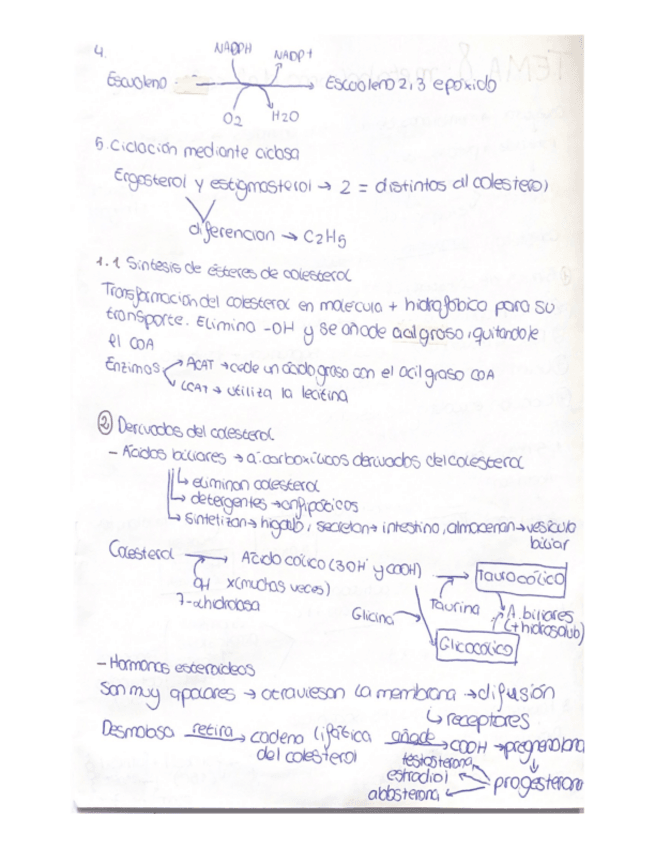 4.
NADPH NADP+
Escualeno → Escualeno 2,3 epóxido
O2 H2O
5. Ciclación mediante ciclasa
Ergosterol y estigmasterol → 2 = distintos al colesterol
diferencian → C2H5
1.1 Síntesis de ésteres de colesterol
Transformación del colesterol en molécula + hidrofóbico para su
transporte. Elimina -OH y se añade acil graso, quitandole
el COA
Enzimas → ACAT → cede un ácido graso con el acil graso COA
LCAT → utiliza la lecitina
② Derivados del colesterol
- Ácidos biliares → a. carboxílicos derivados del colesterol
↳ eliminan colesterol
↳ detergentes → anfipáticos
↳ Sintetizan → higado, secretan → intestino, almacenan → vesícula
biliar
Colesterol → Acido cólico (3OH y COOH) → Taurocólico
OH x(muchas veces)
7-α hidrolasa
Glicina Taurina A. biliares
(+ hidrosolub)
Glicocólico
- Hormonas esteroideos
Son muy apolares → atraviesan la membrana → difusión
↳ receptores
Desmolasa retira → cadena lifática añade → COOH → pregnenolona
del colesterol
testosterona
estradiol progesterona
aldosterona